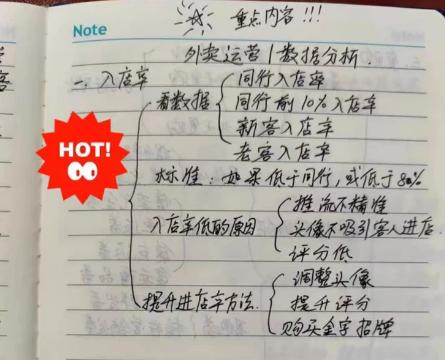 重点内容!!!
Note
外卖运营/数据分析.
一. 入店率
看数据
同行入店率
同行前10%入店率
新客入店率
老客入店率
HOT!
标准: 如果低于同行,或低于8%
入店率低的原因
推流不精准
头像不吸引客人进店.
评分低
提升进店率方法.
调整头像
提升评分
购买金字招牌